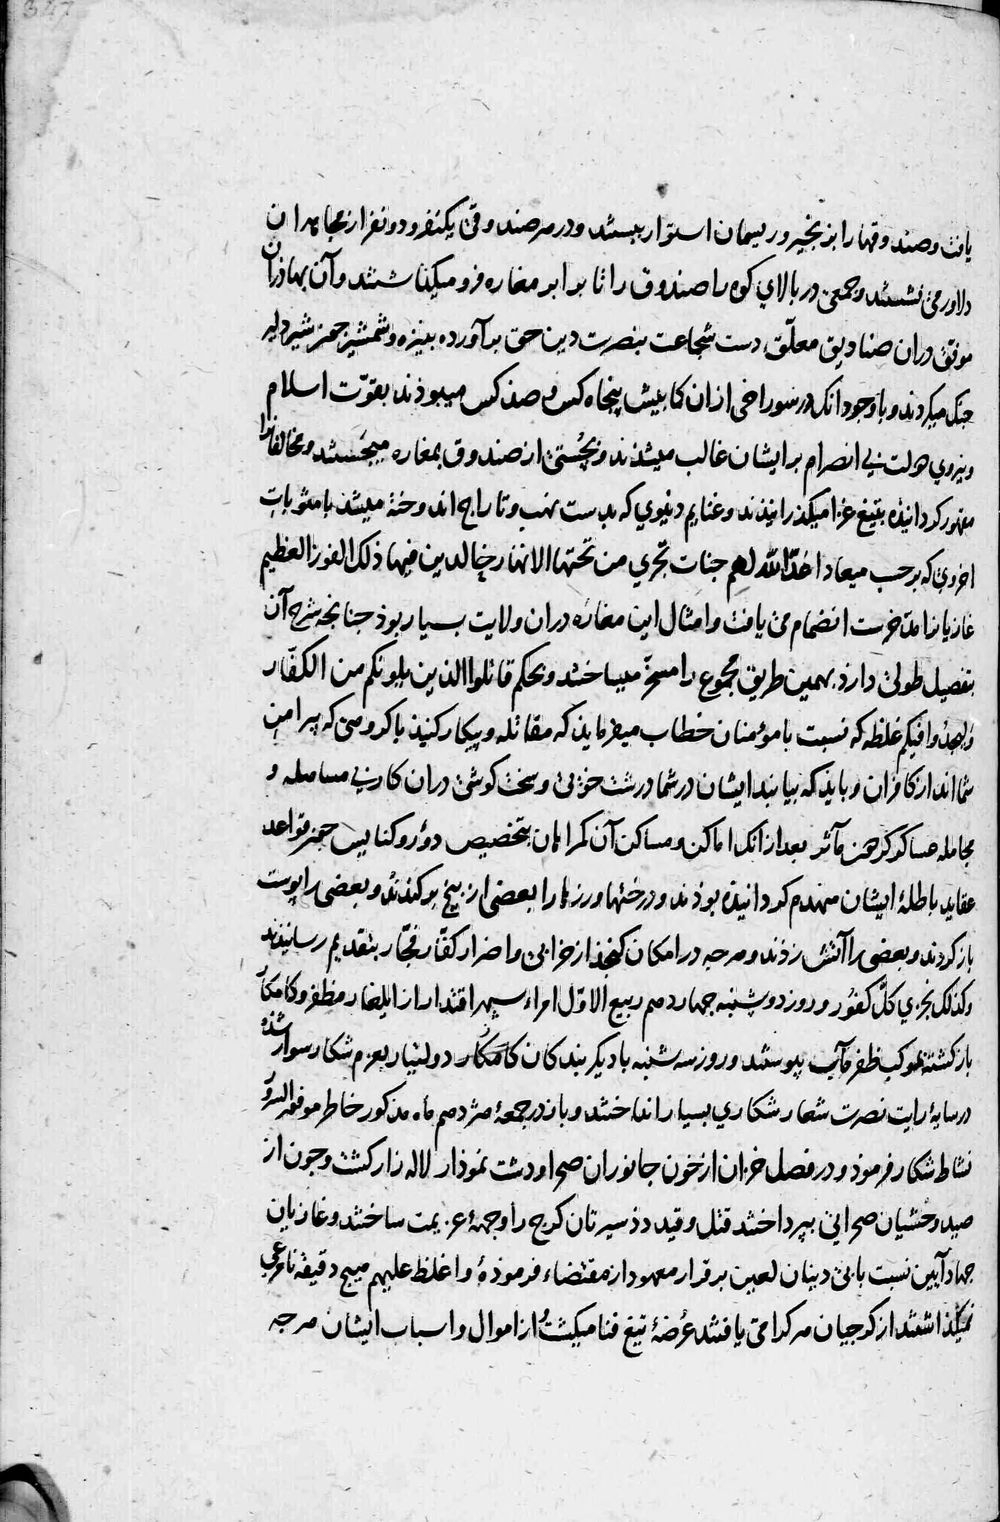 یافت و صندوقها را بزنجیر و ریسمان استوار ببستند و در هر صندوقی یکنفر و دو نفر از مجاهدان
دلاور می نشستند و جمعی در بالای کوه را صندوق را تا برابر مغاره فرو میکذاشتند و آن بهاذران
موفق دران صنادیق معلّق دست شجاعت بنصرت دین حق برآورده بنیزه و شمشیر جون شیر دلیر
جنک میکردند و با وجود انک در سوراخی ازان کما بیش پنجاه کس و صذ کس میبوذند بقوّت اسلام
و نیروی دولت بی انصرام برایشان غالب میشذند و بچُستی از صندوق بمغاره میجَستند و مخالفانرا
مقهور کردانیذه بتیغ غزا میکذرانیذند و غنایم دنیوی که بدست نهب و تاراج اندوخته میشد با مثوبات
اخروی که برحسب میعاد اعدّ الله لهم جنات تجری من تحتها الانهار خالدین فیها ذلک الفوز العظیم
غازیانرا مدّخرست انضمام می یافت و امثال این مغاره دران ولایت بسیار بوذ جنانجه شرح آن
بتفصیل طولی دارذ بهمین طریق مجموع را مسخّر میساختند و بحکم قاتلوا الذین یلونکم من الکفّار
ولیجدوا فیکم غلظة که نسبت با مؤمنان خطاب میفرمایذ که مقاتله و پیکار کنیذ با کروهی که پیرامن
شما اند از کافران و بایذ که بیابند ایشان در شما درشت خویی و سخت کوشی دران کار بی مساهله و
مجامله عساکر کردون مآثر بعد ازانک اماکن و مساکن آن کمراهان بتخصیص دور و کنایس جون قواعد
عقاید باطلهٔ ایشان منهدم کردانیذه بوذند و درختها و رزها را بعضی از بیخ برکندند و بعضی را پوست
باز کردند و بعضی را آتش زذند و هرجه در امکان کنجذ از خرابی و اضرار کفّار فجّار بتقدیم رسانیذند
وکذلک نجزی کلّ کفور و روز دوشنبه جهاردهم ربیع الاوّل امراء سپهر اقتدار از ایلغار مظفر و کامکار
باز کشته بموکب ظفر مآب پیوستند و روز سه شنبه با دیکر بندکان کامکار دولتیار بعزم شکار سوار شذه
در سایهٔ رایت نصرت شعار شکاری بسیار انداختند و باز در جمعهٔ هژدهم ماه مذکور خاطر موفور السرور
نشاط شکار فرموذ و در فصل خزان از خون جانوران صحرا و دشت نموذار لاله زار کشت و جون از
صید وحشیان صحرایی بپرداختند قتل و قید دذ سیرتان کرج را وجههٔ عزیمت ساختند و غازیان
جهاد آیین نسبت با بی دینان لعین برقرار معهود از مقتضاء فرموذهٔ واغلظ علیهم هیج دقیقه نامرعی
نمیکذاشتند از کرجیان هرکرا می یافتند عُرضهٔ تیغ فنا میکشت و از اموال و اسباب ایشان هرجه